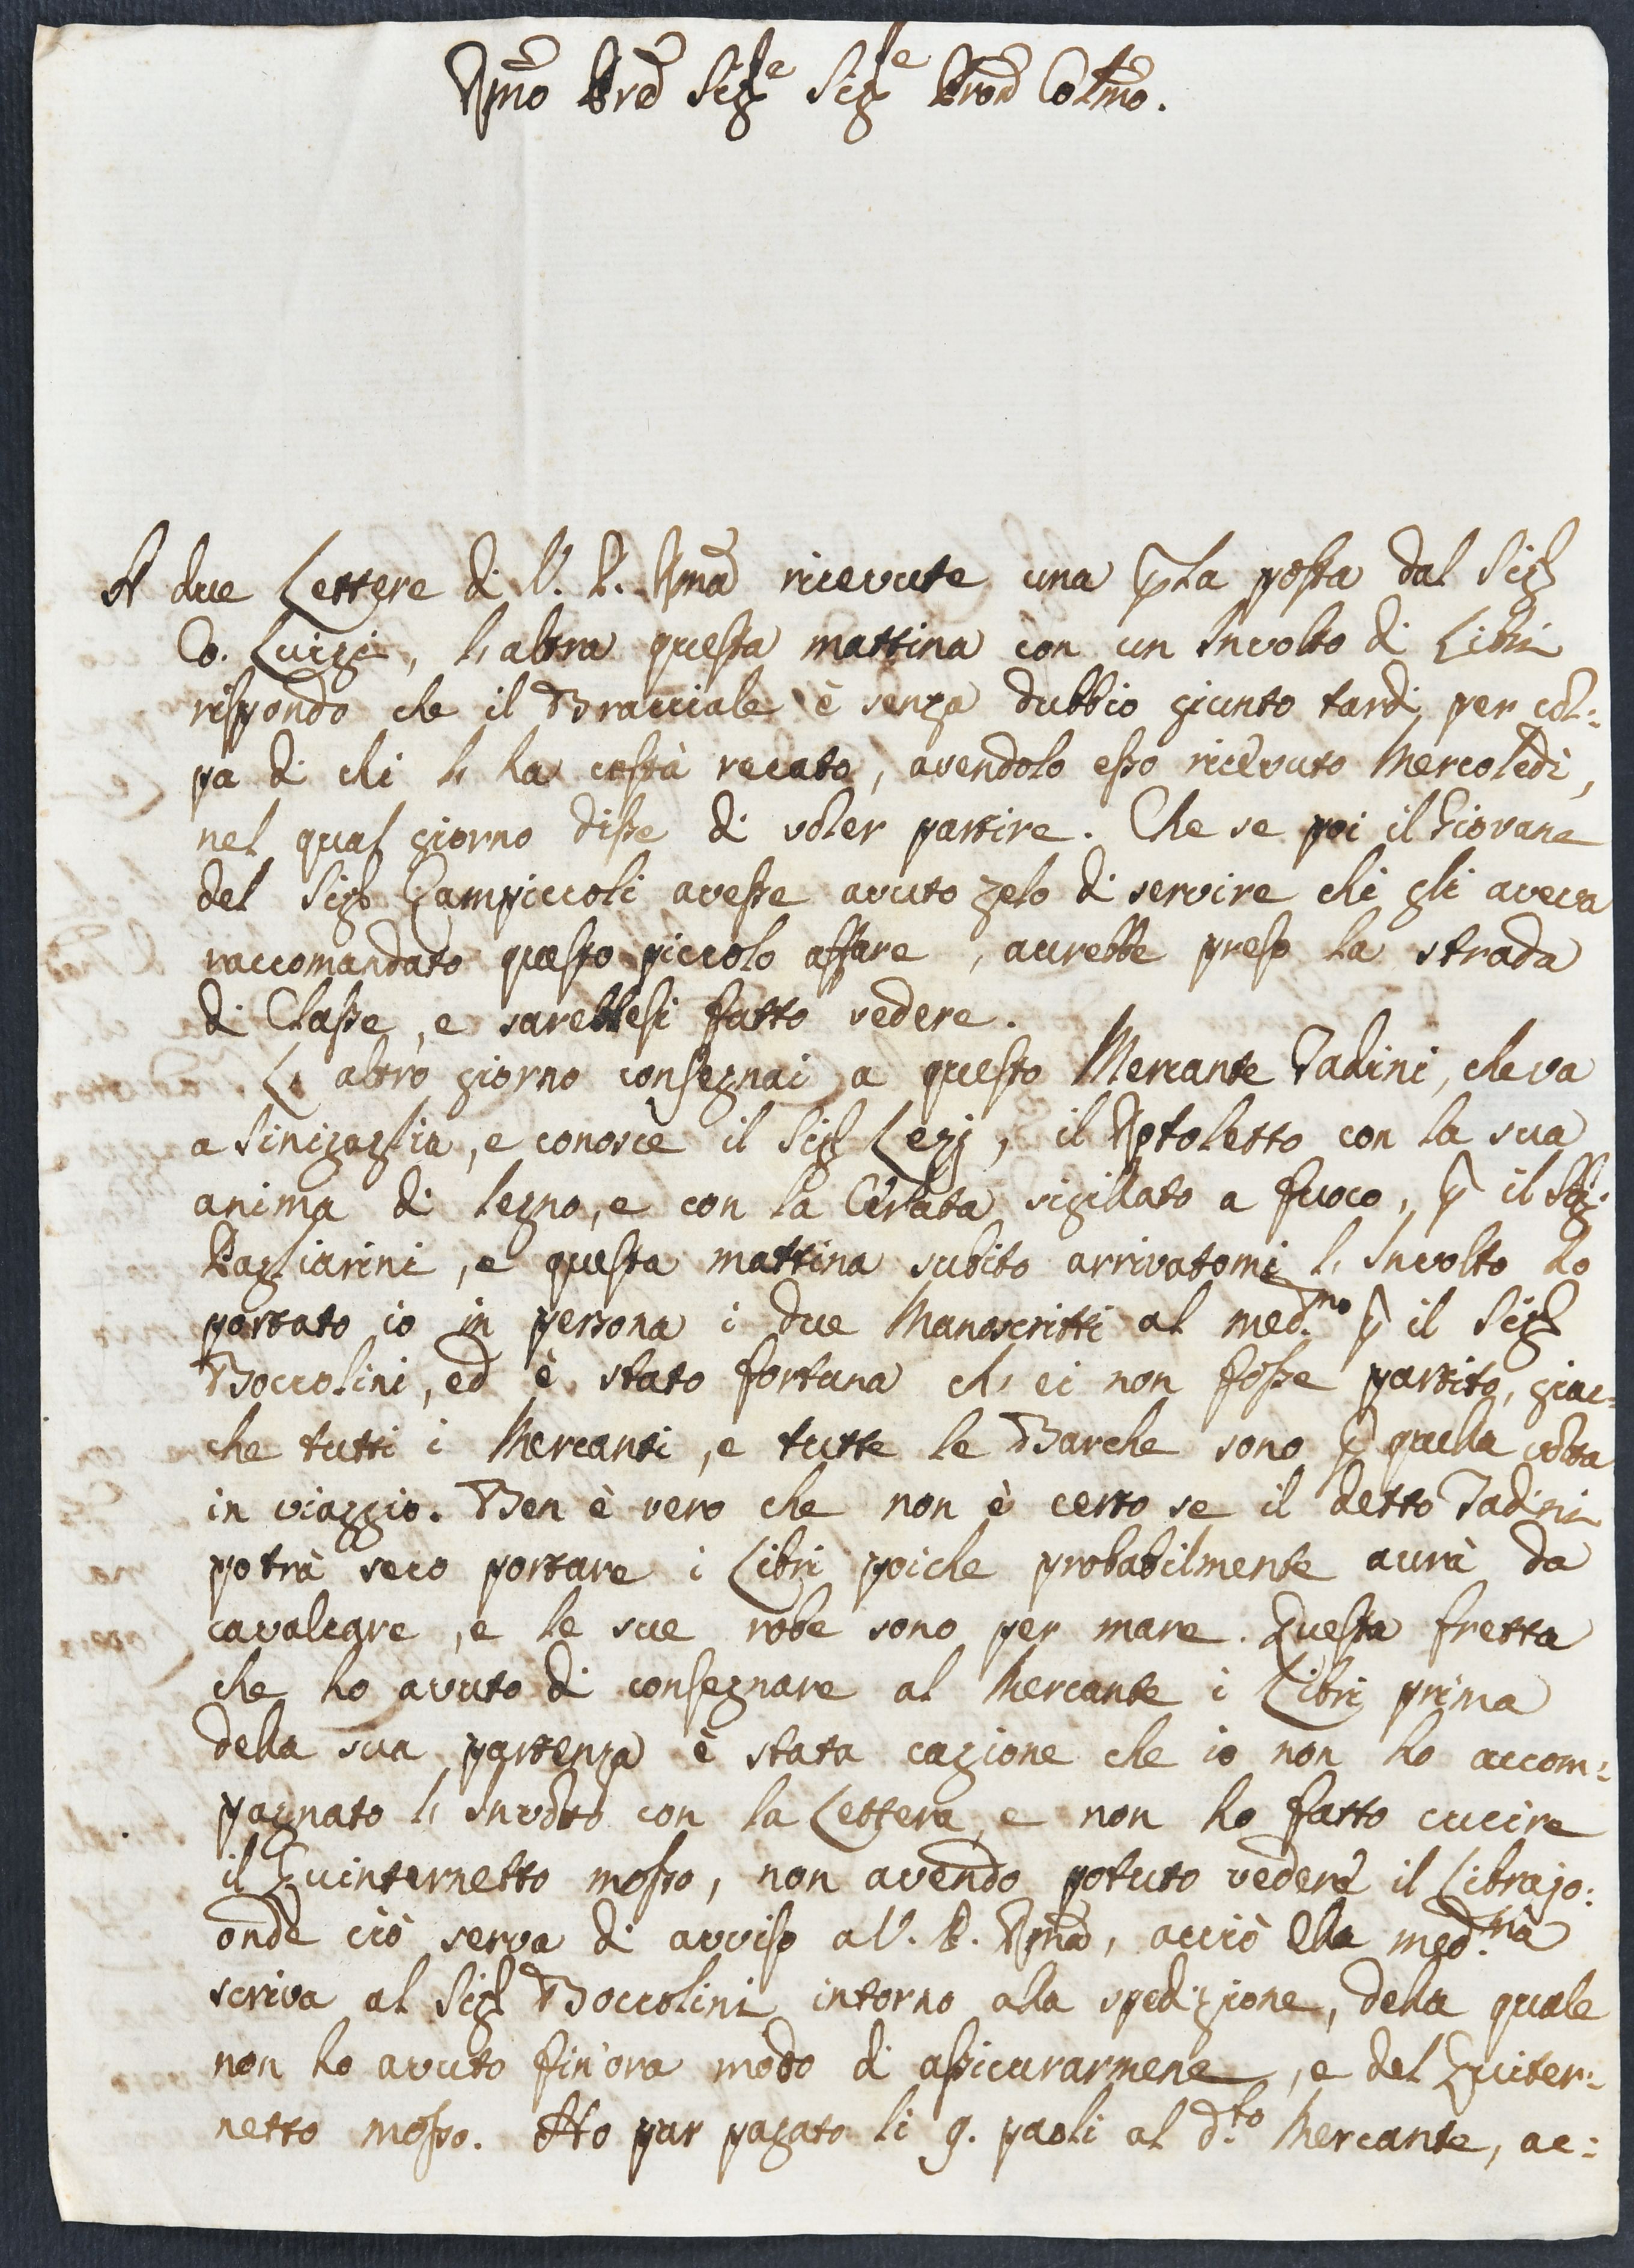 Rmo Pre Sige Sige Pron Colmo.
A due Lettere di V. P. Rma ricevute una p la posta dal Sigr
Co. Luigi, l'altra questa mattina con un Involto di Libri
rispondo che il Bracciale è senza dubbio giunto tardi per col:
pa di chi l'ha costà recato, avendolo esso ricevuto Mercoledì,
nel qual giorno disse di voler partire. Che se poi il Giovane
del Sigr Campiccoli avesse avuto zelo di servire chi gli aveva
raccomandato questo piccolo affare, avrebbe preso la strada
di Classe, e sarebbesi fatto vedere.
L'altro giorno consegnai a questo Mercante Tadini, che va
a Sinigaglia, e conosce il Sigr Legj, il Rotoletto con la sua
anima di legno, e con la Cerata sigillato a fuoco, p il Sig.
Pagliarini, e questa mattina subito arrivatomi l'Involto ho
portato io in persona i due Manoscritti al med.mo p il Sigr
Boccolini, ed è stato fortuna ch'ei non fosse partito, giac:
che tutti i Mercanti, e tutte le Barche sono p quella volta
in viaggio. Ben è vero che non è certo se il detto Tadini
potrà seco portare i Libri poiche probabilmente avrà da
cavalcare, e le sue robe sono per mare. Questa fretta
che ho avuto di consegnare al Mercante i Libri prima
della sua partenza è stata cagione che io non ho accom:
pagnato l'Involto con la Lettera, e non ho fatto cucire
il Quinternetto mosso, non avendo potuto vedere il Librajo:
onde ciò serva di avviso a V. P. Rma, acciò Ella med.ma
scriva al Sigr Boccolini intorno alla spedizione, della quale
non ho avuto fin'ora modo di assicurarmene, e del Quiter:
netto mosso. Ho pur pagato li 9. paoli al d.to Mercante, ac: